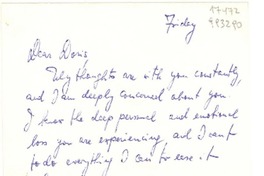 17-172
983290
Friday
Dear Doris,
My thoughts are with you constantly,
and I am deeply concerned about you
I know the deep personal and emotional
loss you are experiencing, and I want
to do everything I can to ease it